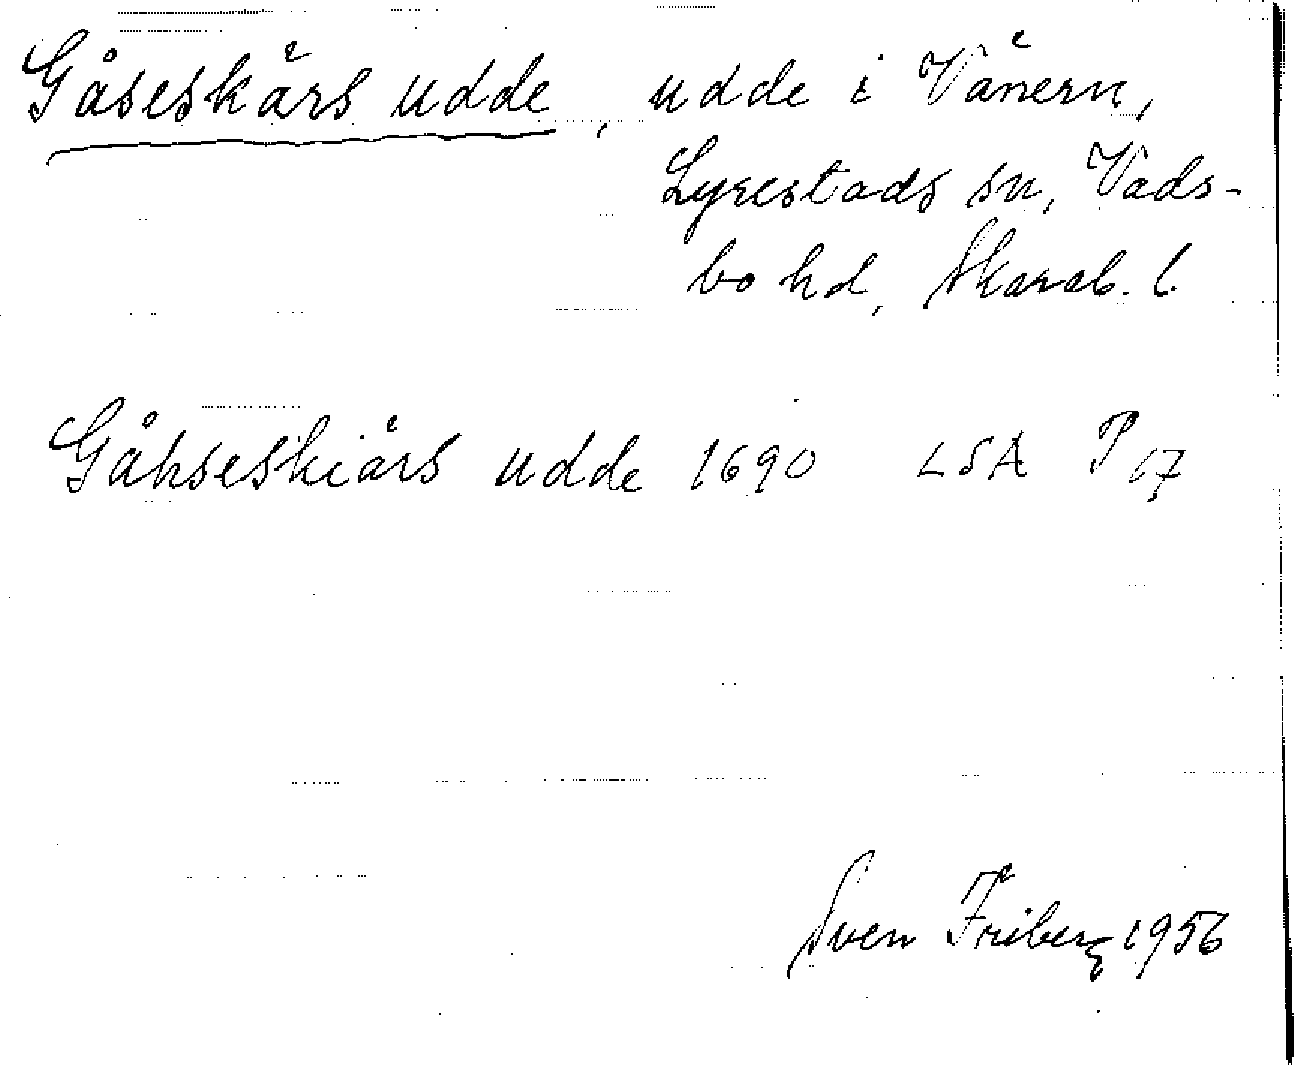 Gåseskärs udde, udde i Vänern,
Lyrestads sn, Vads-
bo hd, Skarab. l.
Gåhseskiärs udde 1690 LSA P 67
Sven Friberg 1956